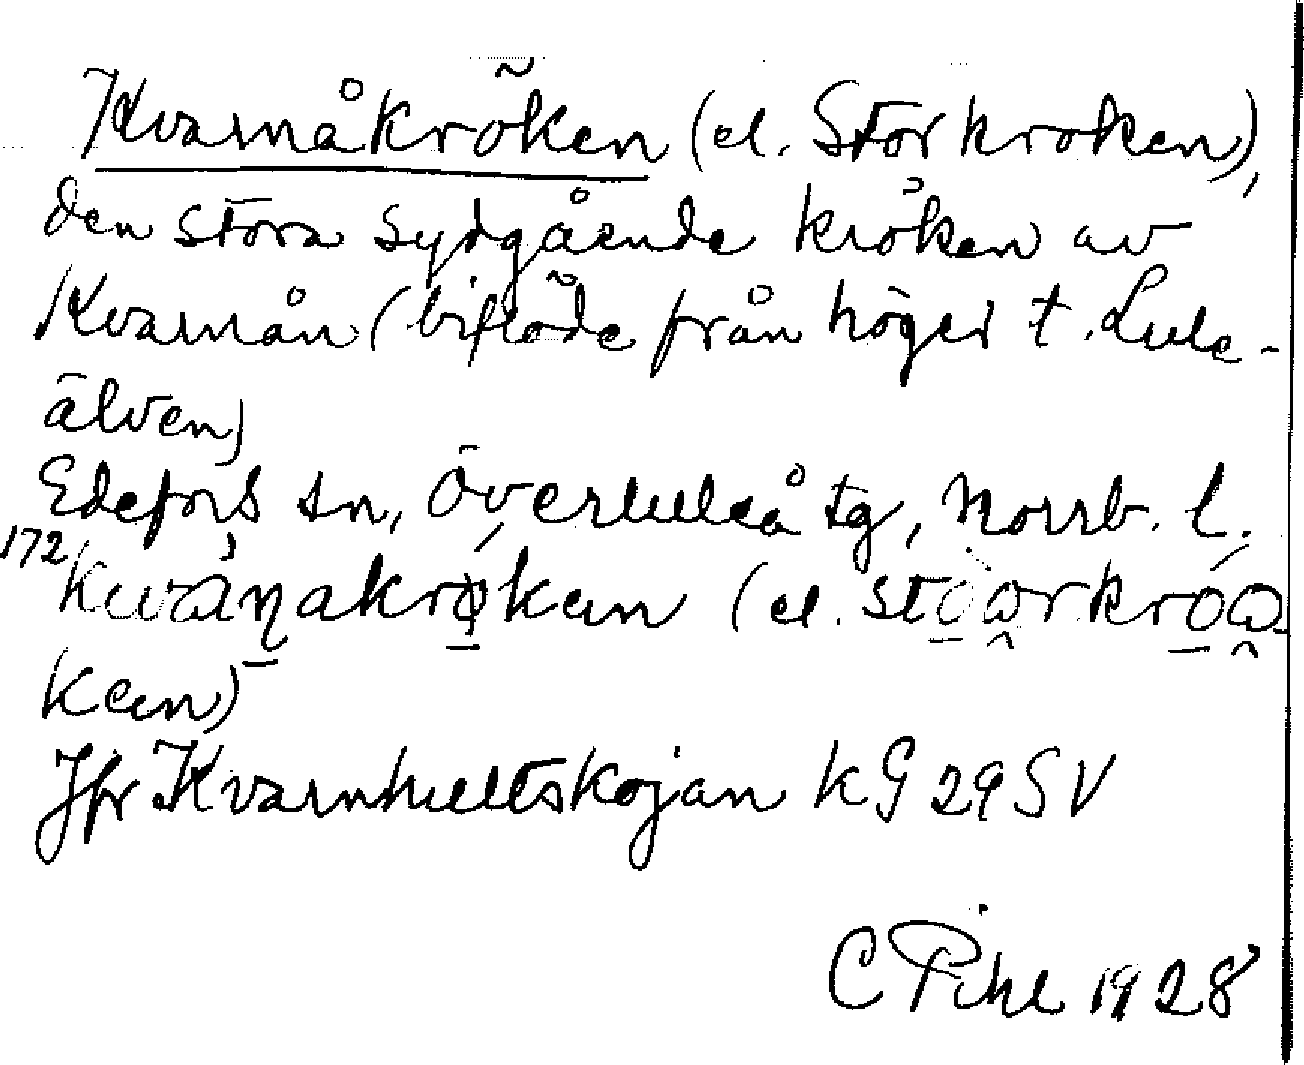 Kvarnåkröken (el. Storkroken),
den stora sydgående kröken av
Kvarnån (biflöde från höger t. Lule-
älven)
Edefors sn, Överluleå tg, Norrb. l.
172 kwa̍ṉakrǿ̱kɐn (el. sto̱ɷ̭rkró̱ɷ̭-
kɐn)
Jfr Kvarnhultskojan kG 29 SV
C Pihl 1928